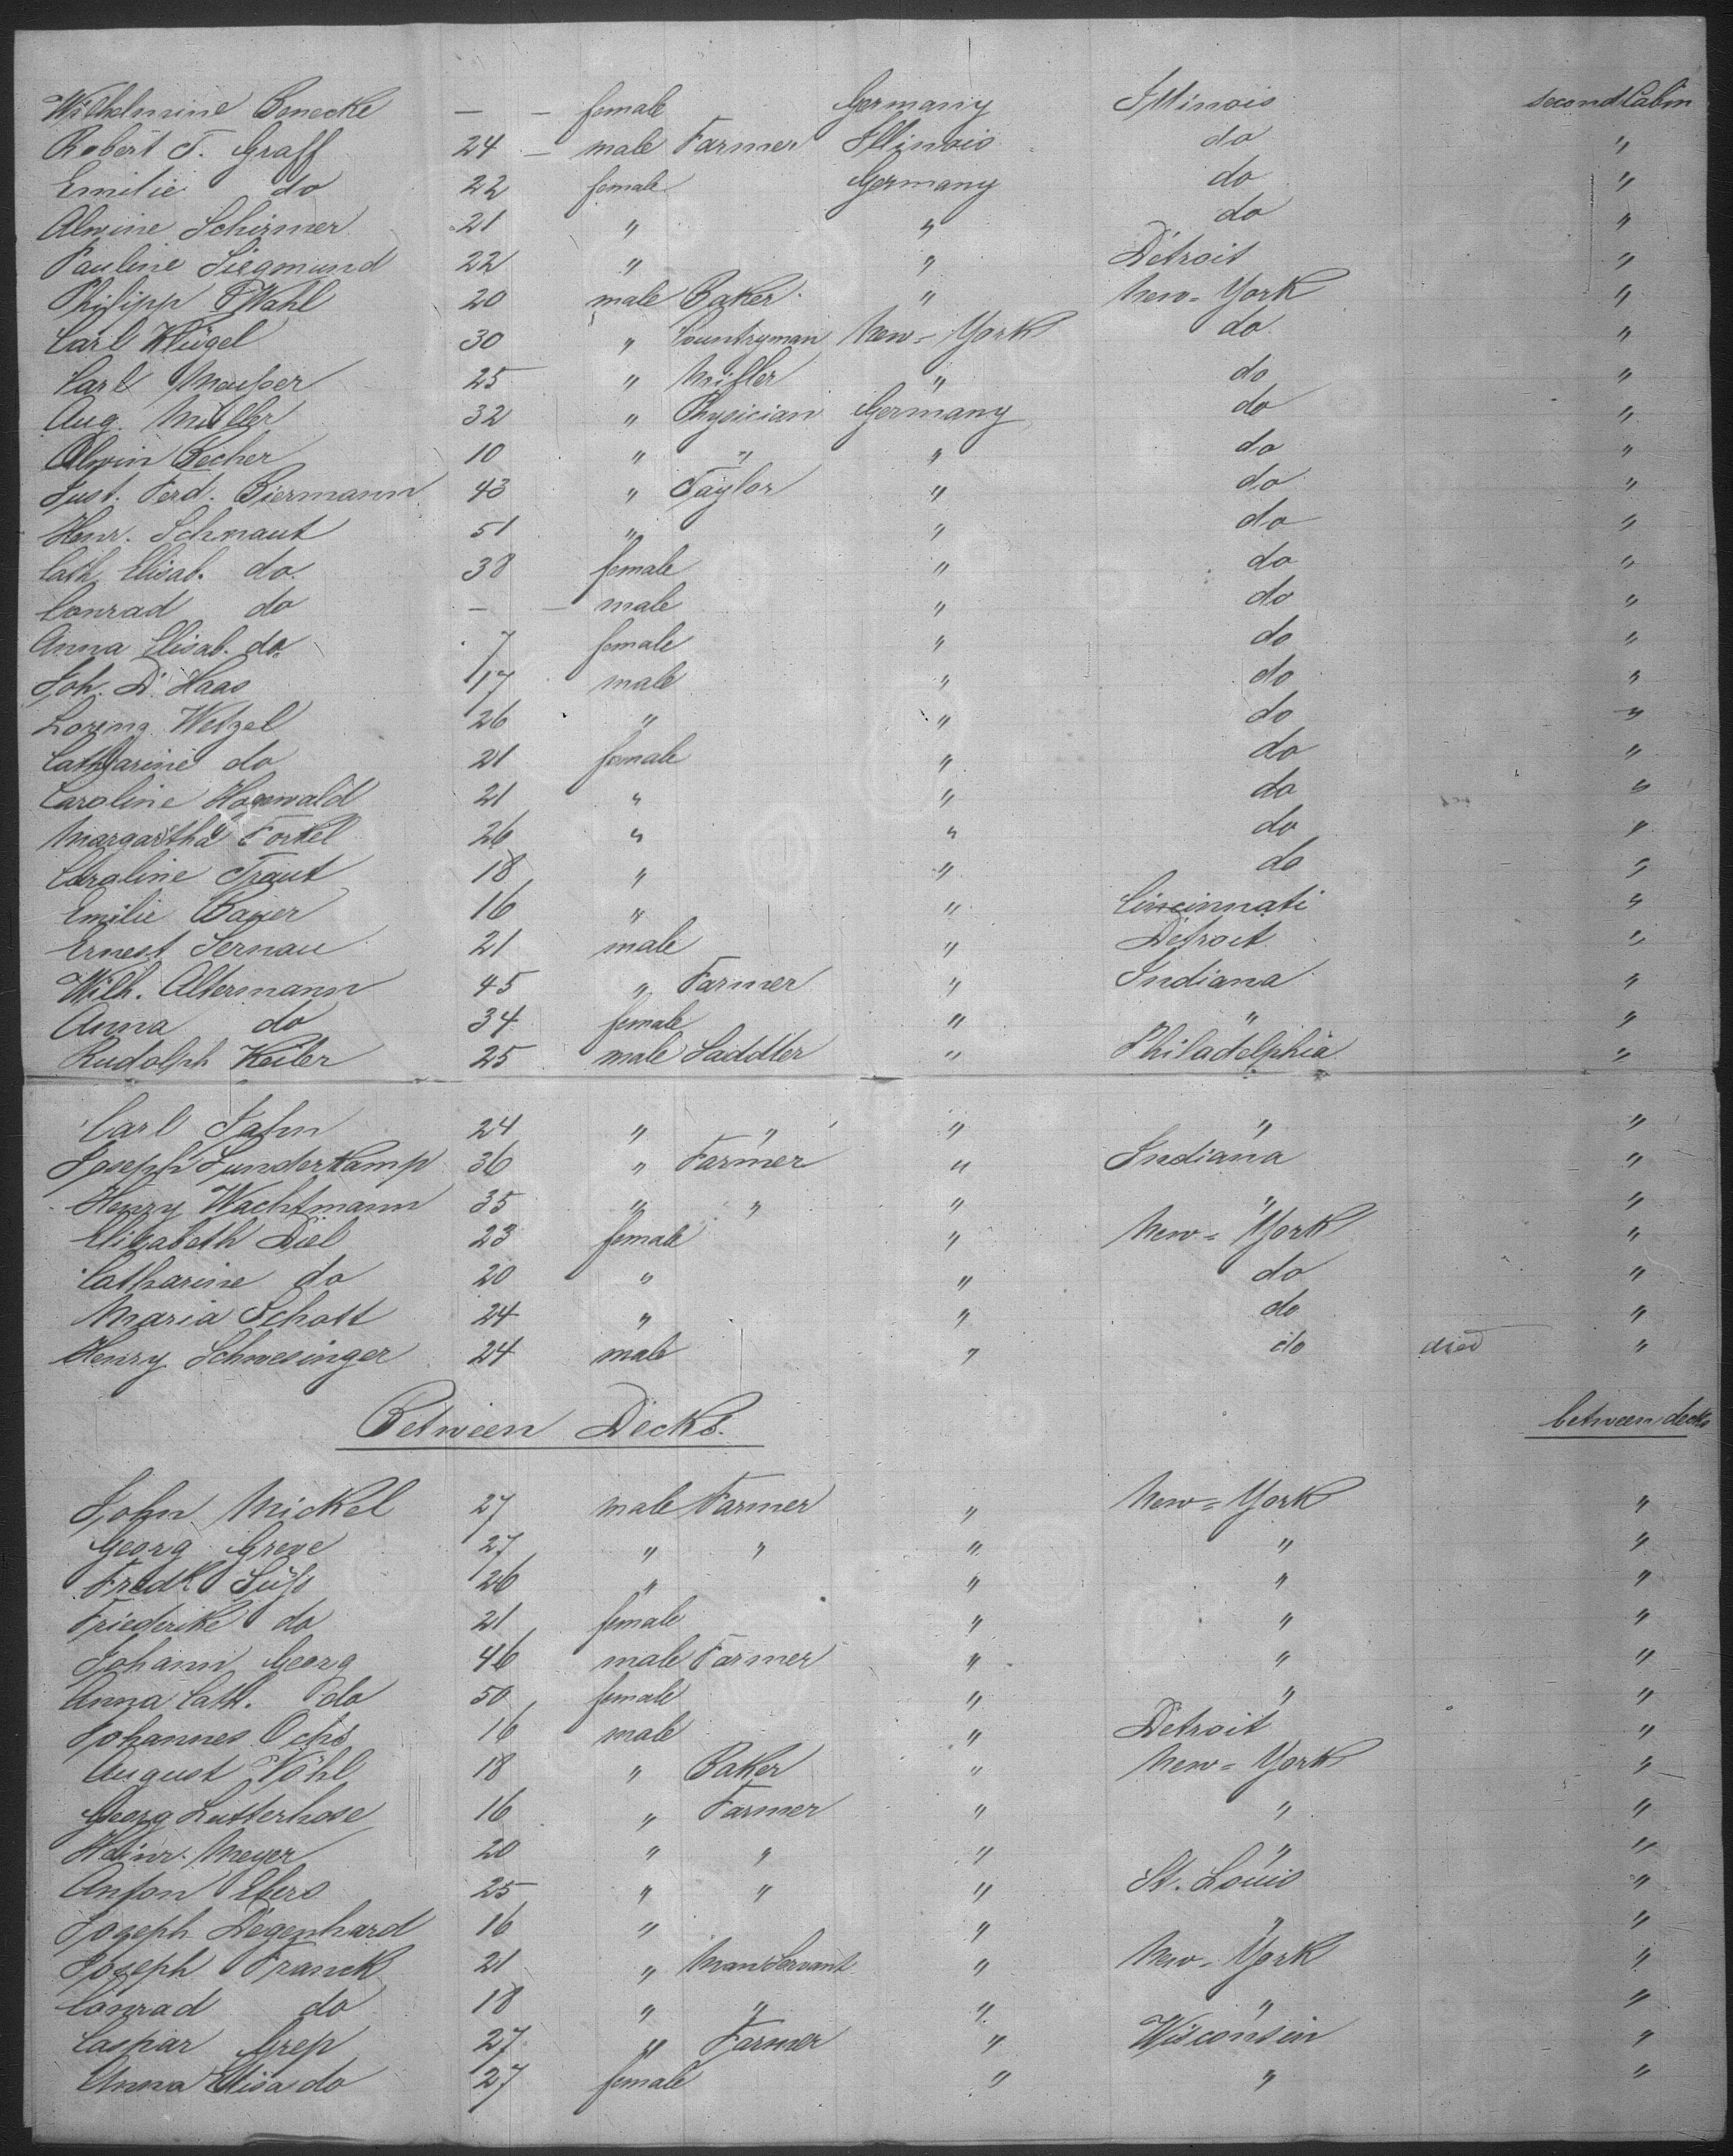 Wilhelmine Benecke — — female Germany Illinois second Cabin
Robert T. Graff 24 — male Farmer Illinois do "
Emilie do 22 female Germany do "
Alwine Schirmer 21 " " do "
Pauline Siegmund 22 " " Detroit "
Philipp Wahl 20 male Baker " New-York "
Carl Klügel 30 " Countryman New-York do "
Carl Mausser 25 " Miller " do "
Aug. Müller 32 " Physician Germany do "
Alwin Becher 10 " " " do "
Just. Ferd. Biermann 43 " Taylor " do "
Henr. Schmaut 51 " " do "
Cath. Elisab. do 38 female " do "
Conrad do — — male " do "
Anna Elisab. do 7 female " do "
Joh. D. Haas 17 male " do "
Lorenz Wetzel 26 " " do "
Catharine do 21 female " do "
Caroline Hagewald 21 " " do "
Margaretha Forkel 26 " " do "
Caroline Traut 18 " " do "
Emilie Bayer 16 " " Cincinnati "
Ernest Sernau 21 male " Detroit "
Wilh. Altermann 45 " Farmer " Indiana "
Anna do 34 female " " "
Rudolph Keiler 25 male Saddler " Philadelphia "
Carl Jahn 24 " " " " "
Joseph Sunderkamp 36 " Farmer " Indiana "
Henry Wachtmann 35 " " " " "
Elisabeth Diel 23 female " New-York "
Catharine do 20 " " do "
Maria Schott 24 " " do "
Henry Schwesinger 24 male " do died "
Between Decks. between decks
John Nickel 27 male Farmer " New-York "
Georg Greve 27 " " " " "
Fredk Süss 26 " " " "
Friederike do 21 female " " "
Johann Georg 46 male Farmer " " "
Anna Cath. do 50 female " " "
Johannes Ochs 16 male " Detroit "
August Vöhl 18 " Baker " New-York "
Georg Lutterhose 16 " Farmer " " "
Heinr. Meyer 20 " " " " "
Anton Ebers 25 " " " St. Louis "
Joseph Degenhard 16 " " " "
Joseph Franck 21 " Man Servant " New-York "
Conrad do 18 " " " " "
Caspar Grep 27 " Farmer " Wisconsin "
Anna Elisa do 27 female " " "